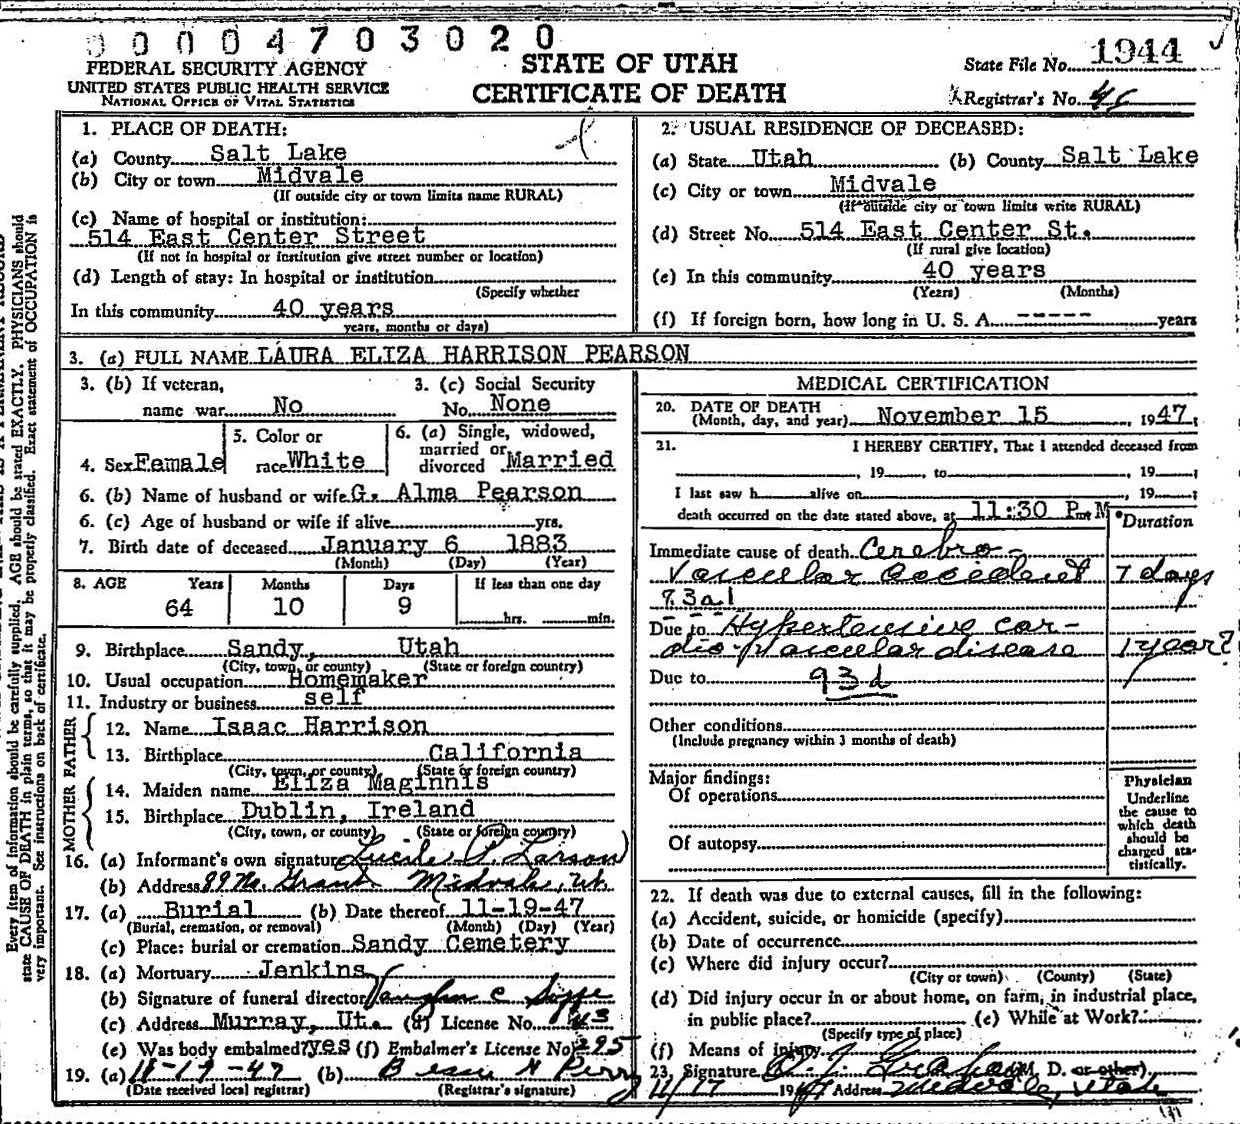 0 0 0 0 4 7 0 3 0 2 0
FEDERAL SECURITY AGENCY
UNITED STATES PUBLIC HEALTH SERVICE
NATIONAL OFFICE OF VITAL STATISTICS
STATE OF UTAH
CERTIFICATE OF DEATH
State File No. 1944
Registrar's No.
1. PLACE OF DEATH:
(a) County Salt Lake
(b) City or town Midvale
(If outside city or town limits name RURAL)
(c) Name of hospital or institution:
514 East Center Street
(If not in hospital or institution give street number or location)
(d) Length of stay: In hospital or institution
(Specify whether
In this community 40 years
years, months or days)
2. USUAL RESIDENCE OF DECEASED:
(a) State Utah (b) County Salt Lake
(c) City or town Midvale
(If outside city or town limits write RURAL)
(d) Street No. 514 East Center St.
(If rural give location)
(e) In this community 40 years
(Years) (Months)
(f) If foreign born, how long in U. S. A. ----- years
3. (a) FULL NAME LAURA ELIZA HARRISON PEARSON
3. (b) If veteran, name war No
3. (c) Social Security No. None
4. Sex Female
5. Color or race White
6. (a) Single, widowed, married or divorced Married
6. (b) Name of husband or wife G. Alma Pearson
6. (c) Age of husband or wife if alive yrs.
7. Birth date of deceased January 6 1883
(Month) (Day) (Year)
8. AGE Years Months Days If less than one day
64 10 9 hrs. min.
9. Birthplace Sandy, Utah
(City, town, or county) (State or foreign country)
10. Usual occupation Homemaker
11. Industry or business self
FATHER
12. Name Isaac Harrison
13. Birthplace California
(City, town, or county) (State or foreign country)
MOTHER
14. Maiden name Eliza Maginnis
15. Birthplace Dublin, Ireland
(City, town, or county) (State or foreign country)
16. (a) Informant's own signature Lucile P. Larson
(b) Address 89 No. Grant Midvale, Ut
17. (a) Burial (b) Date thereof 11-19-47
(Burial, cremation, or removal) (Month) (Day) (Year)
(c) Place: burial or cremation Sandy Cemetery
18. (a) Mortuary Jenkins
(b) Signature of funeral director Vaughn C
(c) Address Murray, Ut. (d) License No. 43
(e) Was body embalmed? yes (f) Embalmer's License No. 295
19. (a) 11-17-47 (b) H Perry
(Date received local registrar) (Registrar's signature)
MEDICAL CERTIFICATION
20. DATE OF DEATH
(Month, day, and year) November 15, 1947;
21. I HEREBY CERTIFY, That I attended deceased from
, 19 , to , 19 ;
I last saw h alive on , 19 ;
death occurred on the date stated above, at 11:30 P.M
*Duration
Immediate cause of death Cerebro-
Vascular accident 7 days
93a1
Due to Hypertensive car-
dio-vascular disease 1 year?
Due to 93d
Other conditions
(Include pregnancy within 3 months of death)
Major findings:
Of operations
Of autopsy
Physician
Underline
the cause to
which death
should be
charged sta-
tistically.
22. If death was due to external causes, fill in the following:
(a) Accident, suicide, or homicide (specify)
(b) Date of occurrence
(c) Where did injury occur?
(City or town) (County) (State)
(d) Did injury occur in or about home, on farm, in industrial place,
in public place? (e) While at Work?
(Specify type of place)
(f) Means of injury
23. Signature (M. D. or other)
11/17 1947 Address Midvale, Utah
Every item of information should be carefully supplied. AGE should be stated EXACTLY. PHYSICIANS should
state CAUSE OF DEATH in plain terms, so that it may be properly classified. Exact statement of OCCUPATION is
very important. See instructions on back of certificate.